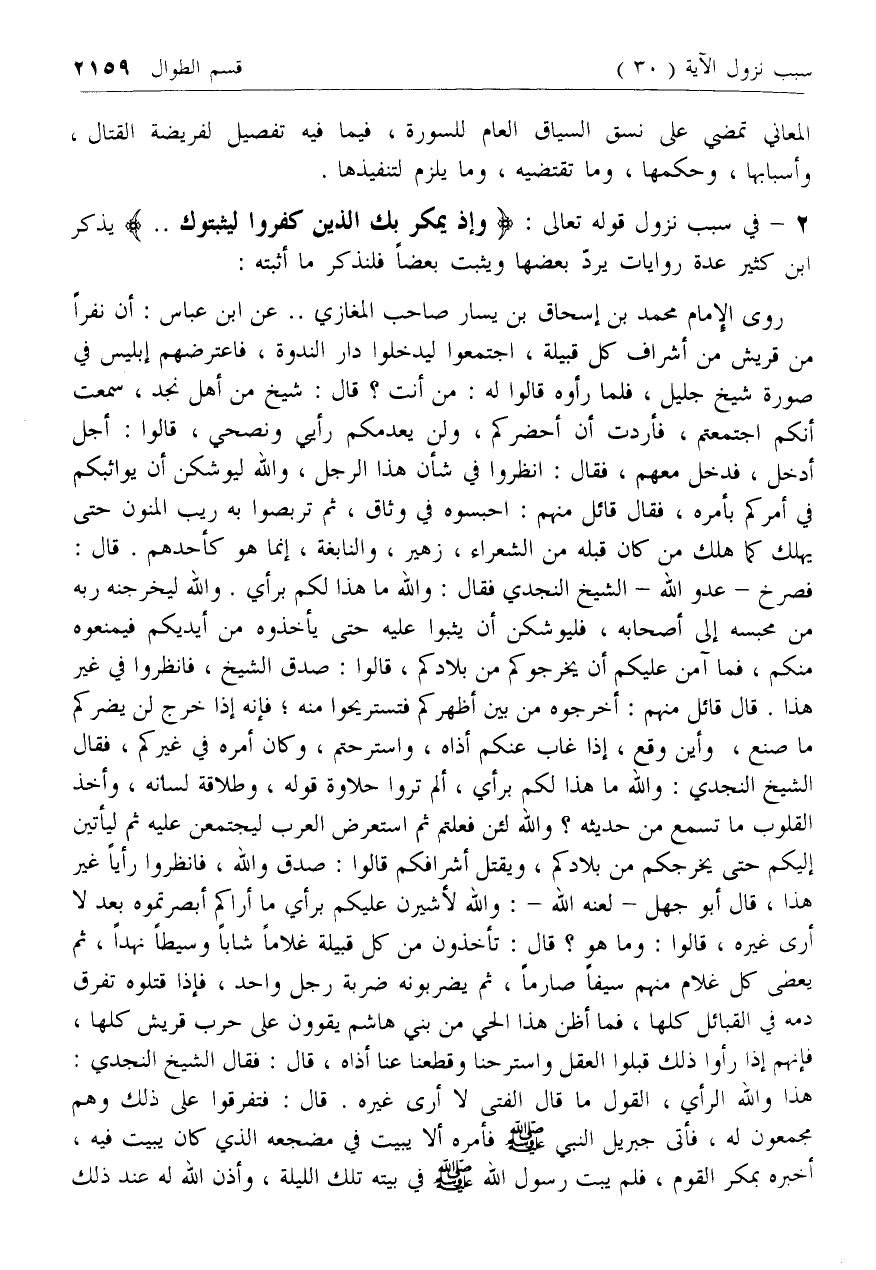 سبب نزول الآية ( ٣٠ ) قسم الطوال ٢١٥٩
المعاني تمضي على نسق السياق العام للسورة ، فيما فيه تفصيل لفريضة القتال ،
وأسبابها ، وحكمها ، وما تقتضيه ، وما يلزم لتنفيذها .
٢ – في سبب نزول قوله تعالى : ﴿ وإذ يمكر بك الذين كفروا ليثبتوك .. ﴾ يذكر
ابن كثير عدة روايات يردّ بعضها ويثبت بعضاً فلنذكر ما أثبته :
روى الإمام محمد بن إسحاق بن يسار صاحب المغازي .. عن ابن عباس : أن نفراً
من قريش من أشراف كل قبيلة ، اجتمعوا ليدخلوا دار الندوة ، فاعترضهم إبليس في
صورة شيخ جليل ، فلما رأوه قالوا له : من أنت ؟ قال : شيخ من أهل نجد ، سمعت
أنكم اجتمعتم ، فأردت أن أحضركم ، ولن يعدمكم رأيي ونصحي ، قالوا : أجل
أدخل ، فدخل معهم ، فقال : انظروا في شأن هذا الرجل ، والله ليوشكن أن يواثبكم
في أمركم بأمره ، فقال قائل منهم : احبسوه في وثاق ، ثم تربصوا به ريب المنون حتى
يهلك كما هلك من كان قبله من الشعراء ، زهير ، والنابغة ، إنما هو كأحدهم . قال :
فصرخ – عدو الله – الشيخ النجدي فقال : والله ما هذا لكم برأي . والله ليخرجنه ربه
من محبسه إلى أصحابه ، فليوشكن أن يثبوا عليه حتى يأخذوه من أيديكم فيمنعوه
منكم ، فما آمن عليكم أن يخرجوكم من بلادكم ، قالوا : صدق الشيخ ، فانظروا في غير
هذا . قال قائل منهم : أخرجوه من بين أظهركم فتستريحوا منه ؛ فإنه إذا خرج لن يضركم
ما صنع ، وأين وقع ، إذا غاب عنكم أذاه ، واسترحتم ، وكان أمره في غيركم ، فقال
الشيخ النجدي : والله ما هذا لكم برأي ، ألم تروا حلاوة قوله ، وطلاقة لسانه ، وأخذ
القلوب ما تسمع من حديثه ؟ والله لئن فعلتم ثم استعرض العرب ليجتمعن عليه ثم ليأتين
إليكم حتى يخرجكم من بلادكم ، ويقتل أشرافكم قالوا : صدق والله ، فانظروا رأياً غير
هذا ، قال أبو جهل – لعنه الله – : والله لأشيرن عليكم برأي ما أراكم أبصرتموه بعد لا
أرى غيره ، قالوا : وما هو ؟ قال : تأخذون من كل قبيلة غلاماً شاباً وسيطاً نهداً ، ثم
يعطى كل غلام منهم سيفاً صارماً ، ثم يضربونه ضربة رجل واحد ، فإذا قتلوه تفرق
دمه في القبائل كلها ، فما أظن هذا الحي من بني هاشم يقوون على حرب قريش كلها ،
فإنهم إذا رأوا ذلك قبلوا العقل واسترحنا وقطعنا عنا أذاه ، قال : فقال الشيخ النجدي :
هذا والله الرأي ، القول ما قال الفتى لا أرى غيره . قال : فتفرقوا على ذلك وهم
مجمعون له ، فأتى جبريل النبي ﷺ فأمره ألا يبيت في مضجعه الذي كان يبيت فيه ،
أخبره بمكر القوم ، فلم يبت رسول الله ﷺ في بيته تلك الليلة ، وأذن الله له عند ذلك